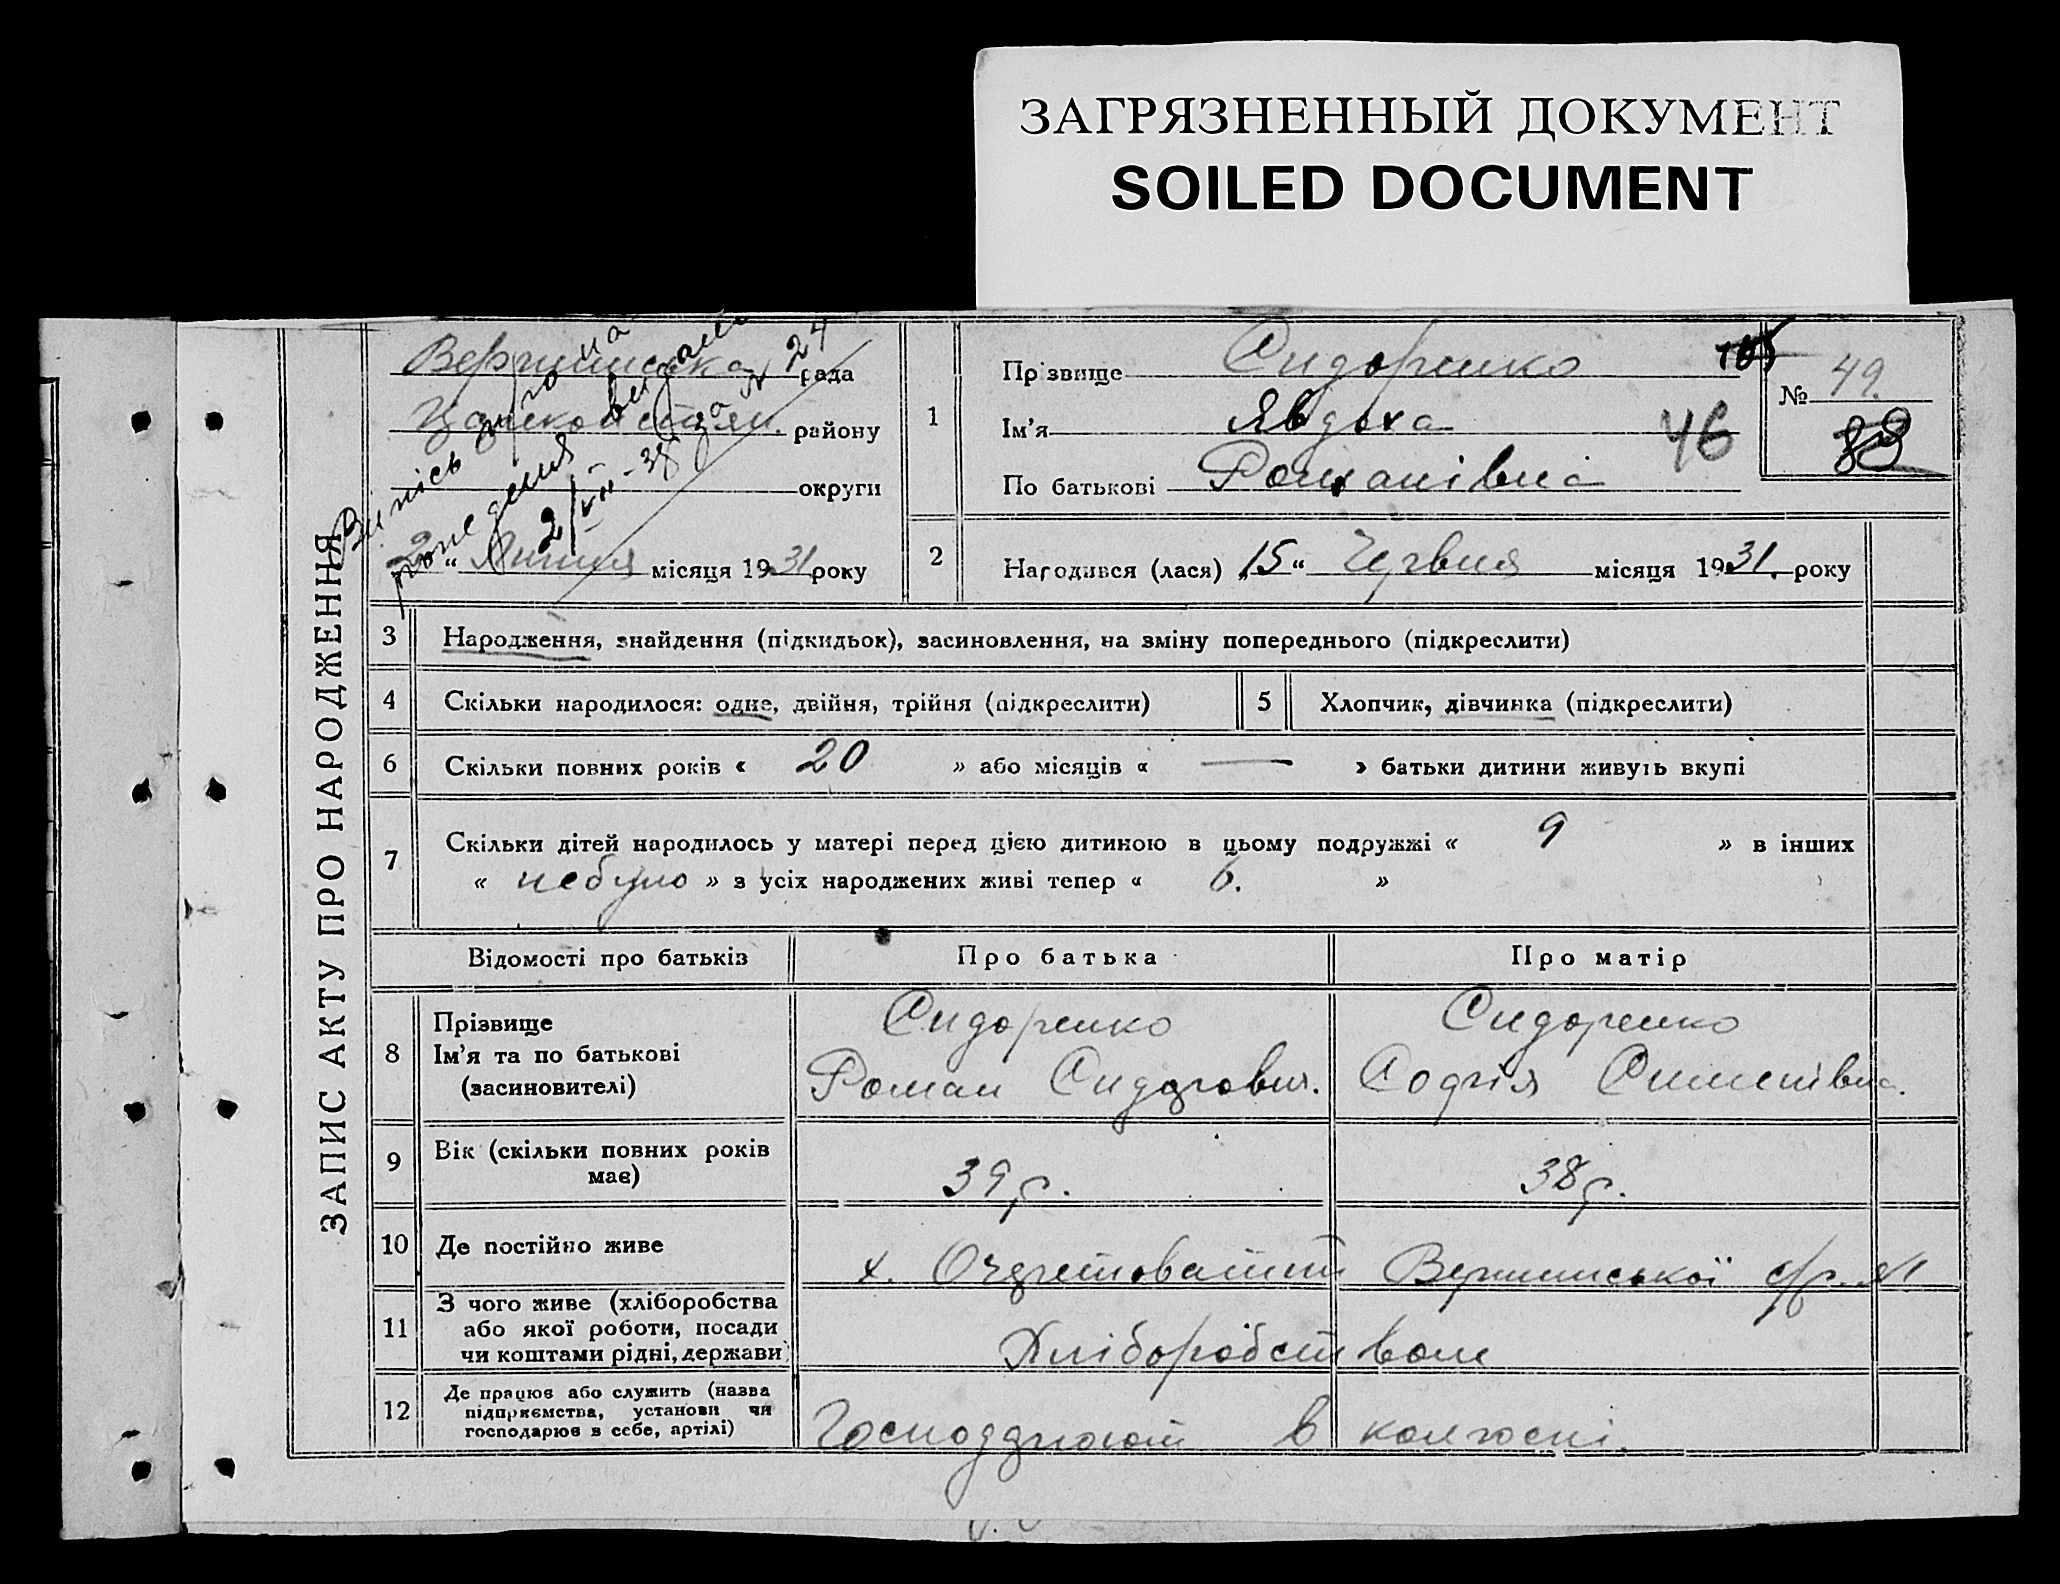 ЗАГРЯЗНЕННЫЙ ДОКУМЕНТ
SOILED DOCUMENT
ЗАПИС АКТУ ПРО НАРОДЖЕННЯ
рада
району
округи
2 " Липня місяця 1931 року
24
2/VII-38
1
Прізвище Сидоренко
Ім'я Явдоха
По батькові Романівна
105
46
№ 49.
88
2
Народився (лася) „15“ Червня місяця 1931. року
3 Народження, знайдення (підкидьок), засиновлення, на зміну попереднього (підкреслити)
4 Скільки народилося: одне, двійня, трійня (підкреслити) 5 Хлопчик, дівчинка (підкреслити)
6 Скільки повних років « 20 » або місяців « — » батьки дитини живуть вкупі
7 Скільки дітей народилось у матері перед цією дитиною в цьому подружжі « 9 » в інших
« небуло » з усіх народжених живі тепер « 6. »
Відомості про батьків Про батька Про матір
8 Прізвище Сидоренко Сидоренко
Ім'я та по батькові Роман Сидорович. Софія
(засиновителі)
9 Вік (скільки повних років має) 39 р. 38 р.
10 Де постійно живе х. Вершинської с/р.
11 З чого живе (хліборобства або якої роботи, посади чи коштами рідні, держави) Хліборобством
12 Де працює або служить (назва підприємства, установи чи господарює в себе, артілі) Господарюють в колгоспі.